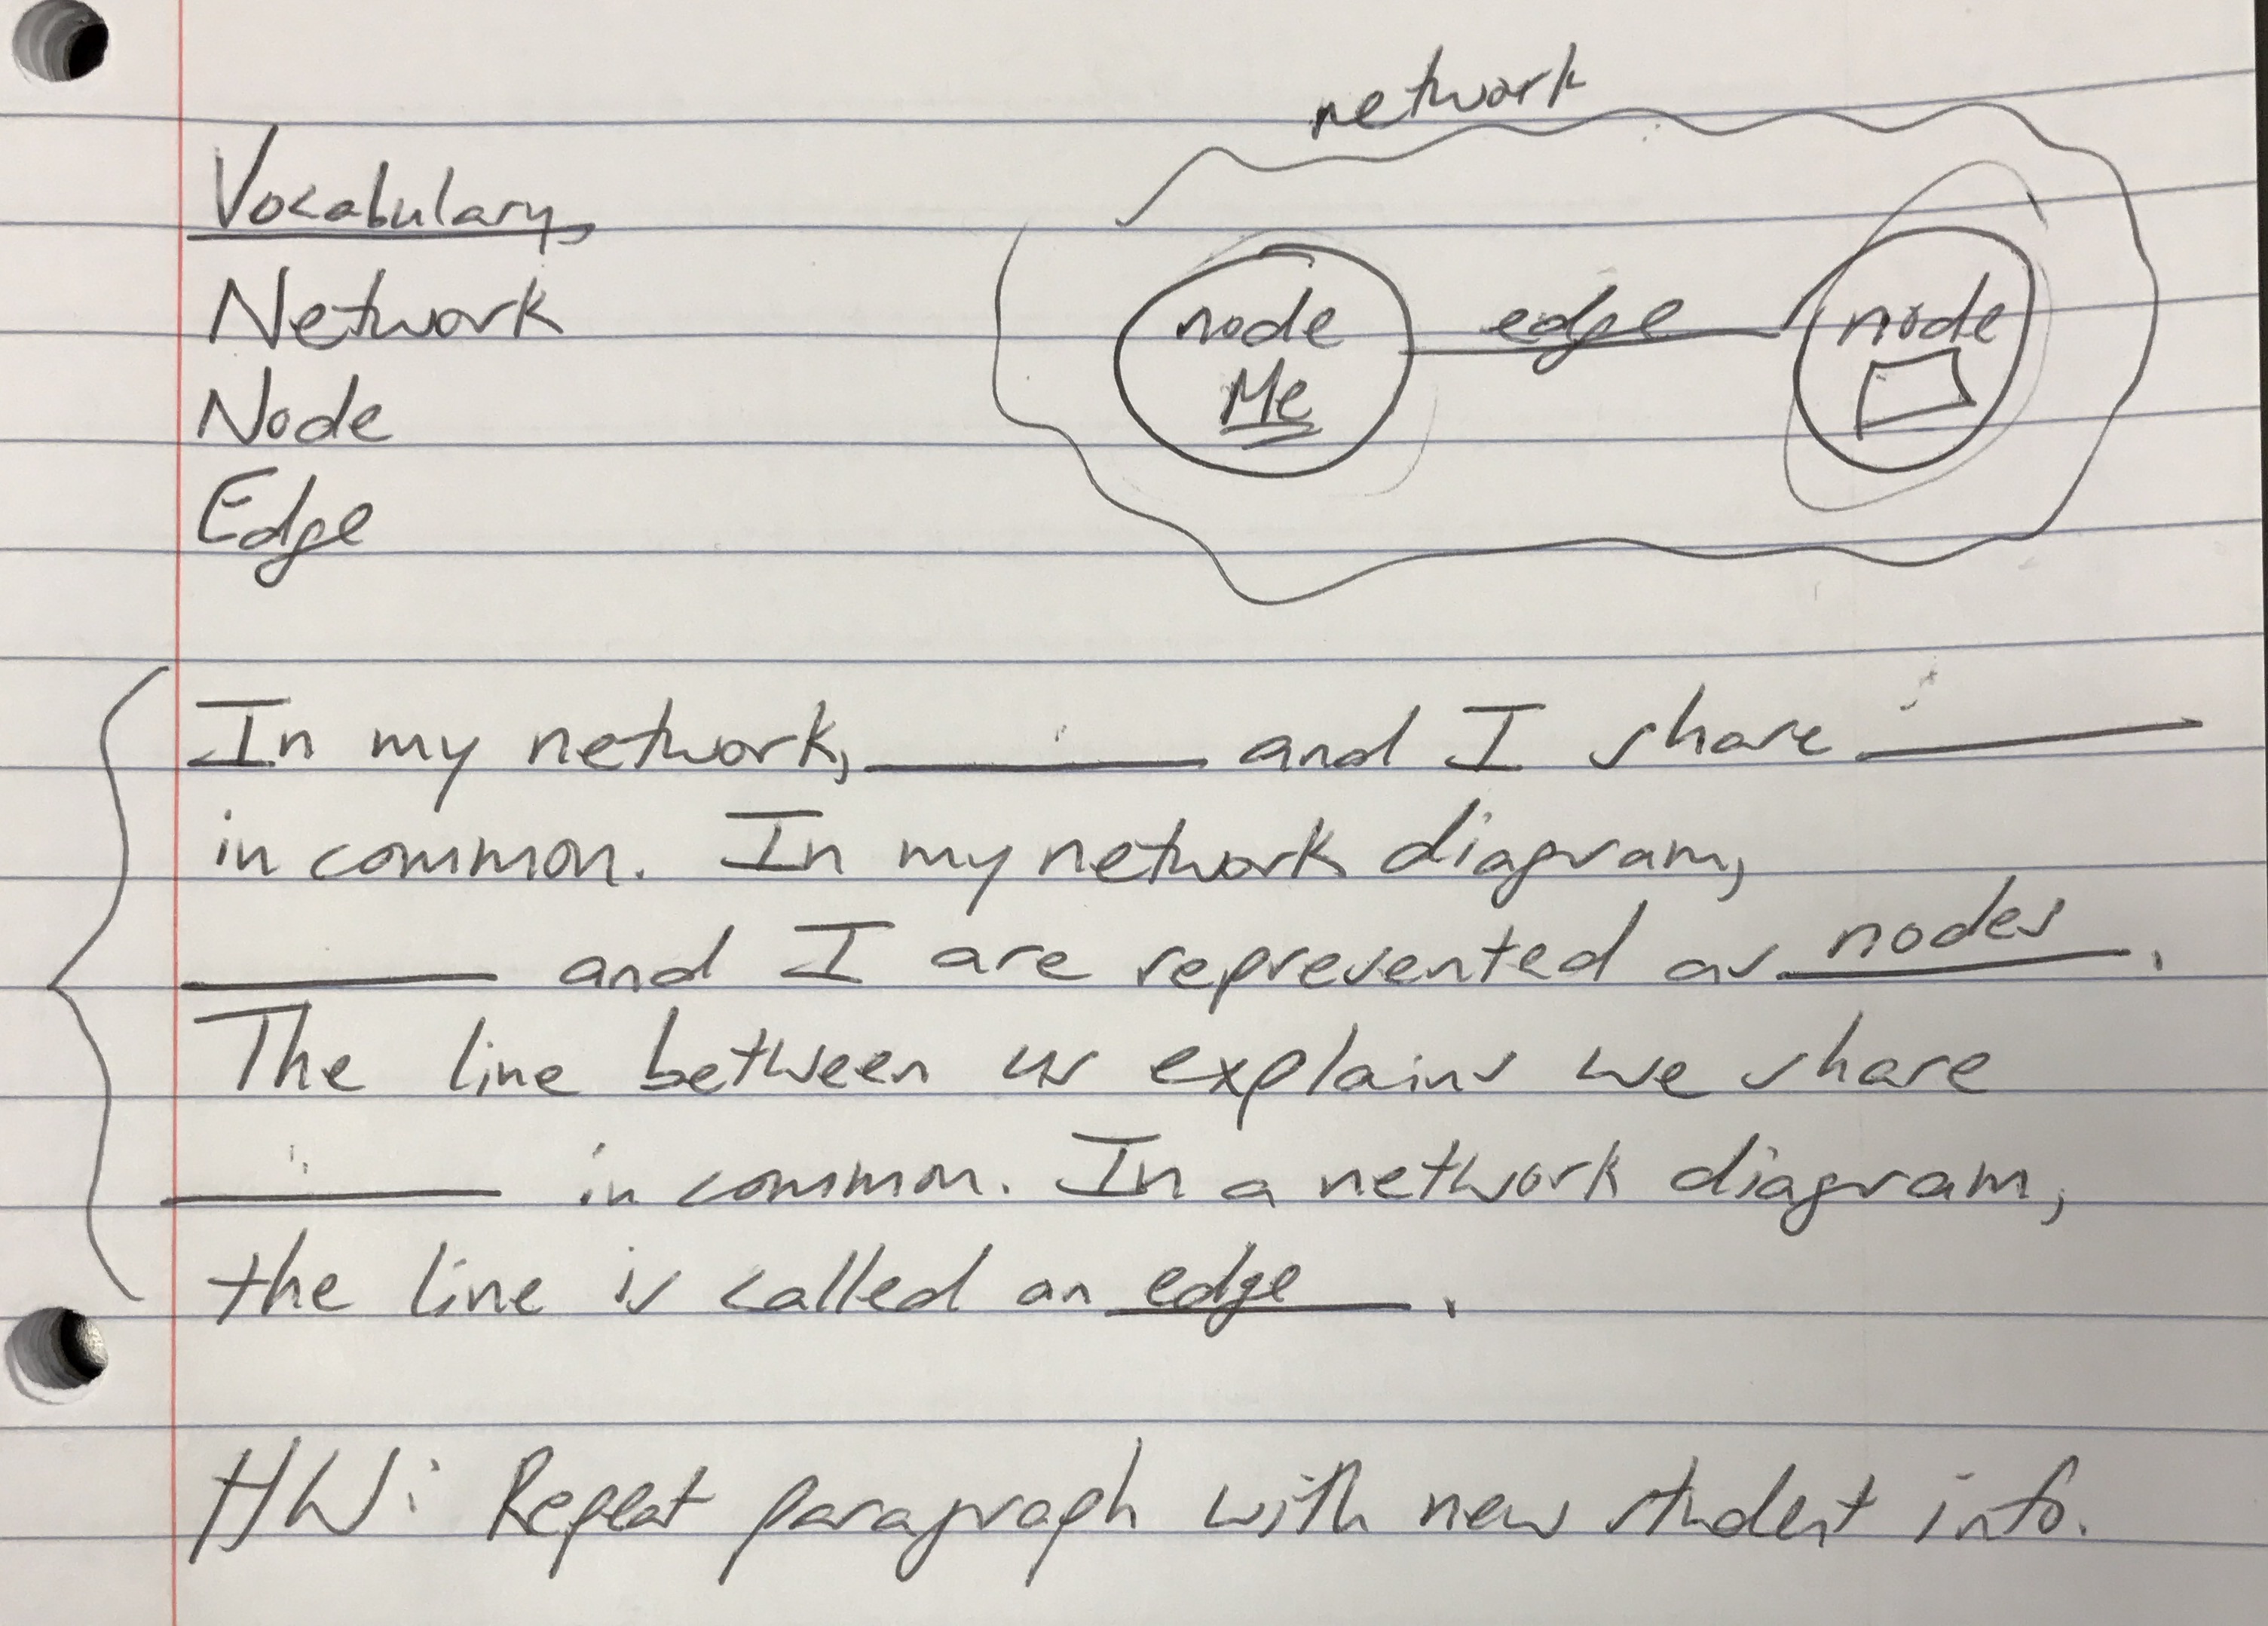 network
Vocabulary
Network
Node
Edge
node edge node
Me
In my network, ______ and I share ______
in common. In my network diagram,
______ and I are represented as nodes.
The line between us explains we share
______ in common. In a network diagram,
the line is called an edge.
HW: Repeat paragraph with new student info.